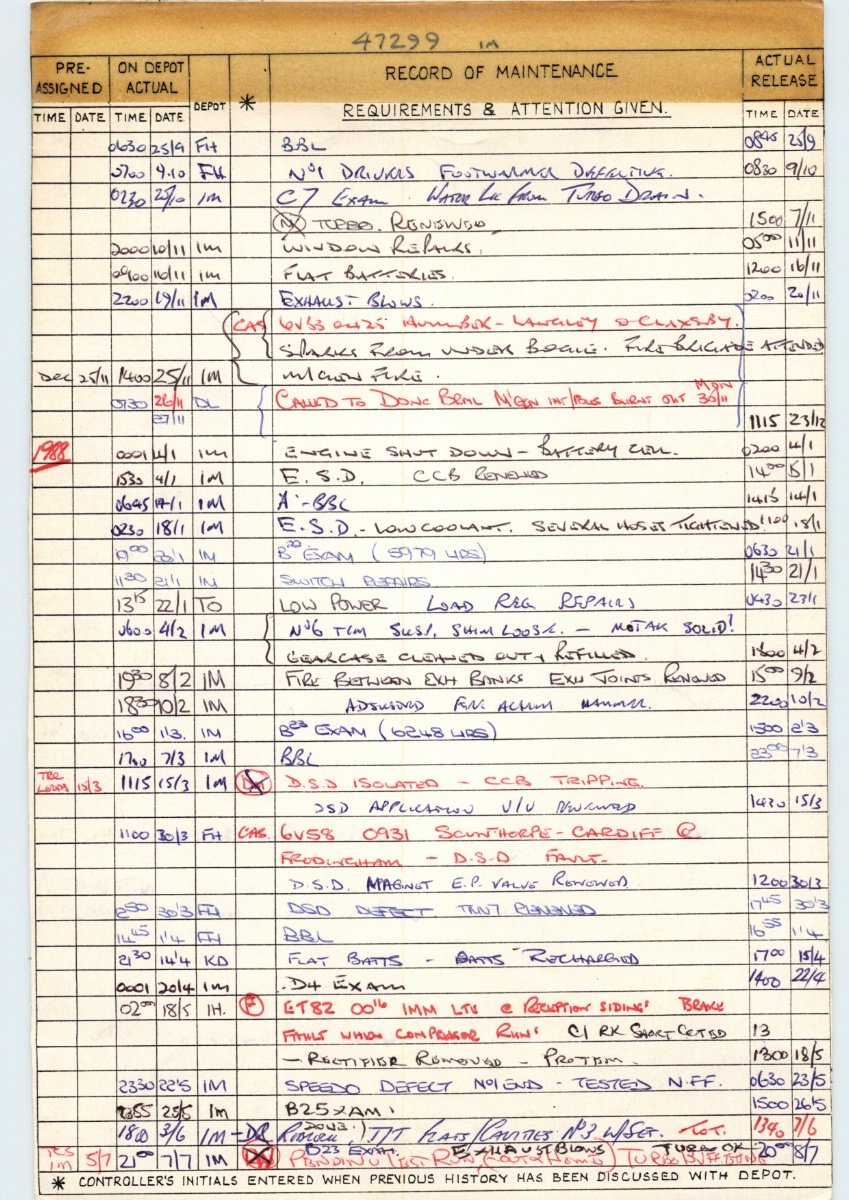 47299 IM
PRE-ASSIGNED ON DEPOT ACTUAL DEPOT * RECORD OF MAINTENANCE ACTUAL RELEASE
TIME DATE TIME DATE REQUIREMENTS & ATTENTION GIVEN. TIME DATE
0630 25/9 FH BBL 0845 25/9
0700 9.10 FH Nº1 DRIVERS FOOTWARMER DEFECTIVE. 0830 9/10
0230 25/10 IM C7 EXAM. WATER LK FROM TURBO DRAIN.
TURBO. RENEWED 1500 7/11
2000 10/11 IM WINDOW REPAIRS. 0500 11/11
0900 16/11 IM FLAT BATTERIES. 1200 16/11
2200 19/11 IM EXHAUST BLOWS. 0200 20/11
CAS 6V53 0425 HUMBER - LANGLEY @ CLAXSBY.
SPARKS FROM UNDER BOGIE. FIRE BRIGADE ATTENDED
DEC 25/11 1400 25/11 IM FIRE.
0730 26/11 DL CALLED TO DONC BRML M'GEN INT/POLES BURNT OUT MON 30/11
27/11 1115 23/12
1988 0001 4/1 IM ENGINE SHUT DOWN - BATTERY CELL. 0200 4/1
1530 4/1 IM E.S.D. CCB RENEWED 1400 5/1
0645 14/1 IM A'-BBL 1415 14/1
0230 18/1 IM E.S.D. - LOW COOLANT. SEVERAL HOSES TIGHTENED 1100 18/1
1900 20/1 IM B20 EXAM (5979 HRS) 0630 21/1
1130 21/1 IM SWITCH REPAIRS 1430 21/1
1315 22/1 TO LOW POWER LOAD REG. REPAIRS 0430 23/1
0600 4/2 IM Nº6 T/M SUSP. SHIM LOOSE. - MOTAK SOLID!
GEARCASE CLEANED OUT & REFILLED. 1800 4/2
1930 8/2 IM FIRE BETWEEN EXH BANKS EXH JOINTS RENEWED 1500 9/2
1830 10/2 IM ADJUSTED HAMMER. 2200 10/2
1600 1/3. IM B23 EXAM (6248 HRS) 1500 2/3
1730 7/3 IM BBL 2300 7/3
TRE LEEDS 15/3 1115 15/3 IM D.S.D ISOLATED - CCB TRIPPING.
DSD APPLICATION V/V RENEWED 1430 15/3
1100 30/3 FH CAS. 6V58 0931 SCUNTHORPE - CARDIFF @
FRODINGHAM - D.S.D FAULT.
D.S.D. MAGNET E.P. VALVE RENEWED. 1200 30/3
30/3 FH DSD DEFECT RENEWED 1745 30/3
1445 1/4 FH BBL 1655 1/4
2130 14/4 KD FLAT BATTS - BATTS RECHARGED 1700 15/4
0001 20/4 IM .D4 EXAM 1400 22/4
0200 18/5 IH. P ET82 0016 IMM LTS @ RECEPTION SIDINGS BRAKE
FAULT WHEN COMPRESSOR RUNS C/RK SHORT CCTED 13
- RECTIFIER REMOVED - PROTEM. 1300 18/5
2330 22/5 IM SPEEDO DEFECT Nº1 END - TESTED N.F.F. 0630 23/5
2355 25/5 IM B2 EXAM. 1500 26/5
1800 3/6 IM - DR T/T FLATS/CAVITIES Nº3 W/SET. 1340 7/6
IM 5/7 2100 7/7 IM B23 EXAM. EXHAUST BLOWS TURBO OK 2000 8/7
* CONTROLLER'S INITIALS ENTERED WHEN PREVIOUS HISTORY HAS BEEN DISCUSSED WITH DEPOT.